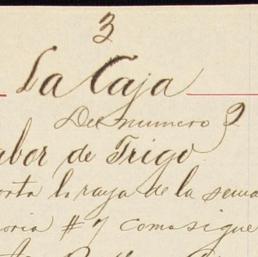 3
La Caja
Del numero 9
abor de Trigo
orta la raya de la sema
oria #7 como sigue